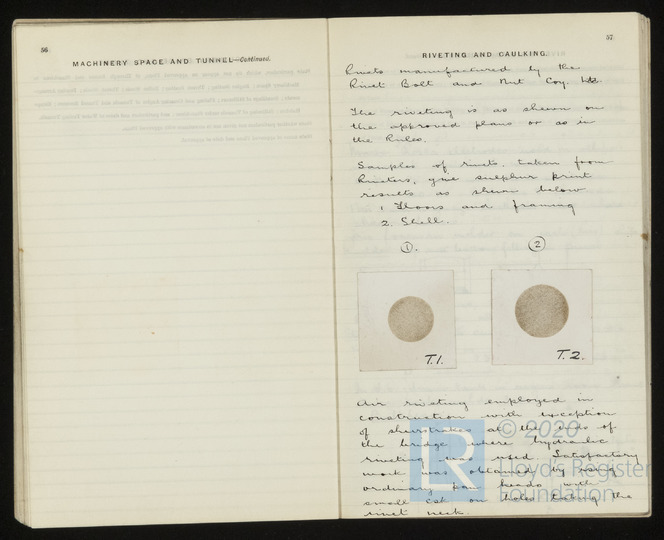 56
MACHINERY SPACE AND TUNNEL—Continued.
57
RIVETING AND CAULKING.
Rivets manufactured by the
Rivet Bolt and Nut Coy. Ltd.
The riveting is as shewn on
the approved plans or as in
the Rules.
Samples of rivets, taken from
Riveters, give sulphur print
results as shewn below
1. Floors and framing
2. Shell.
1. 2
T.1. T.2.
Air riveting employed in
construction with exception
of sheerstrakes at the ends of
the bridge where hydraulic
riveting was used. Satisfactory
work was obtained by using
ordinary pan heads with
small csk on holes taking the
rivet neck.
LR
© 2020
Lloyd's Register
Foundation